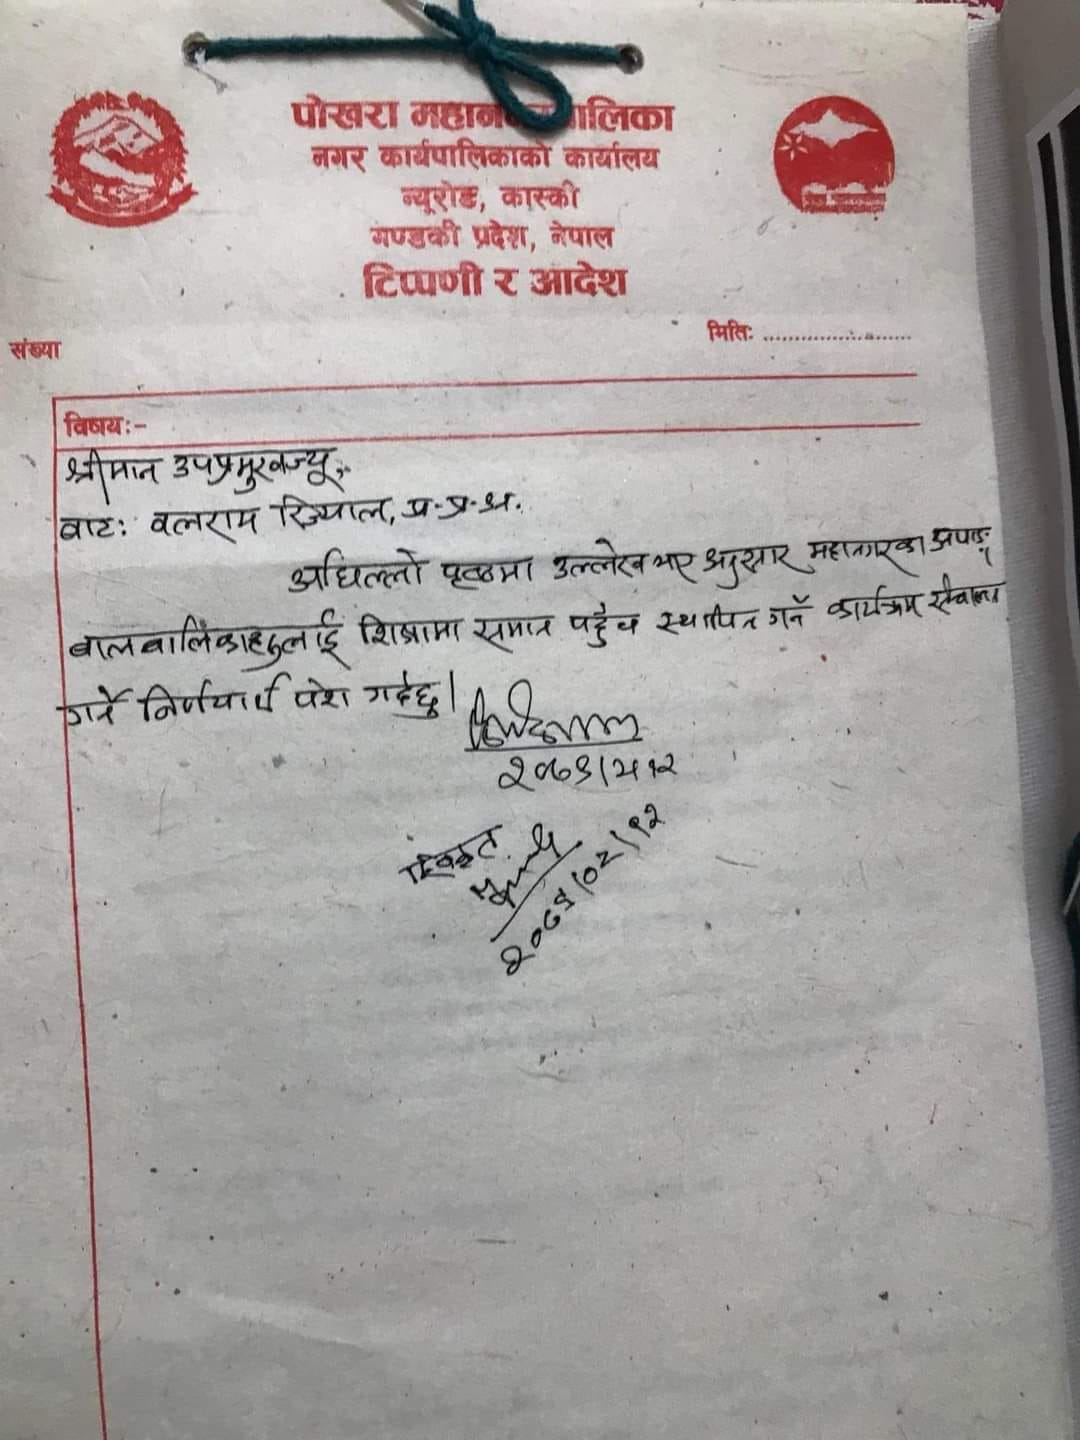 पोखरा महानगरपालिका
नगर कार्यपालिकाको कार्यालय
न्यूरोड, कास्की
गण्डकी प्रदेश, नेपाल
टिप्पणी र आदेश
मितिः ........................
संख्या
विषयः-
श्रीमान उपप्रमुखज्यू,
बाटः बलराम रिज्याल, प्र.प्र.अ.
अघिल्लो पृष्ठमा उल्लेख भए अनुसार महानगरका अपाङ्ग
बालबालिकाहरुलाई शिक्षामा समान पहुँच स्थापित गर्न कार्यक्रम संचालन
गर्ने निर्णयार्थ पेश गर्दछु।
स्विकृत
२०७९/०२/१२